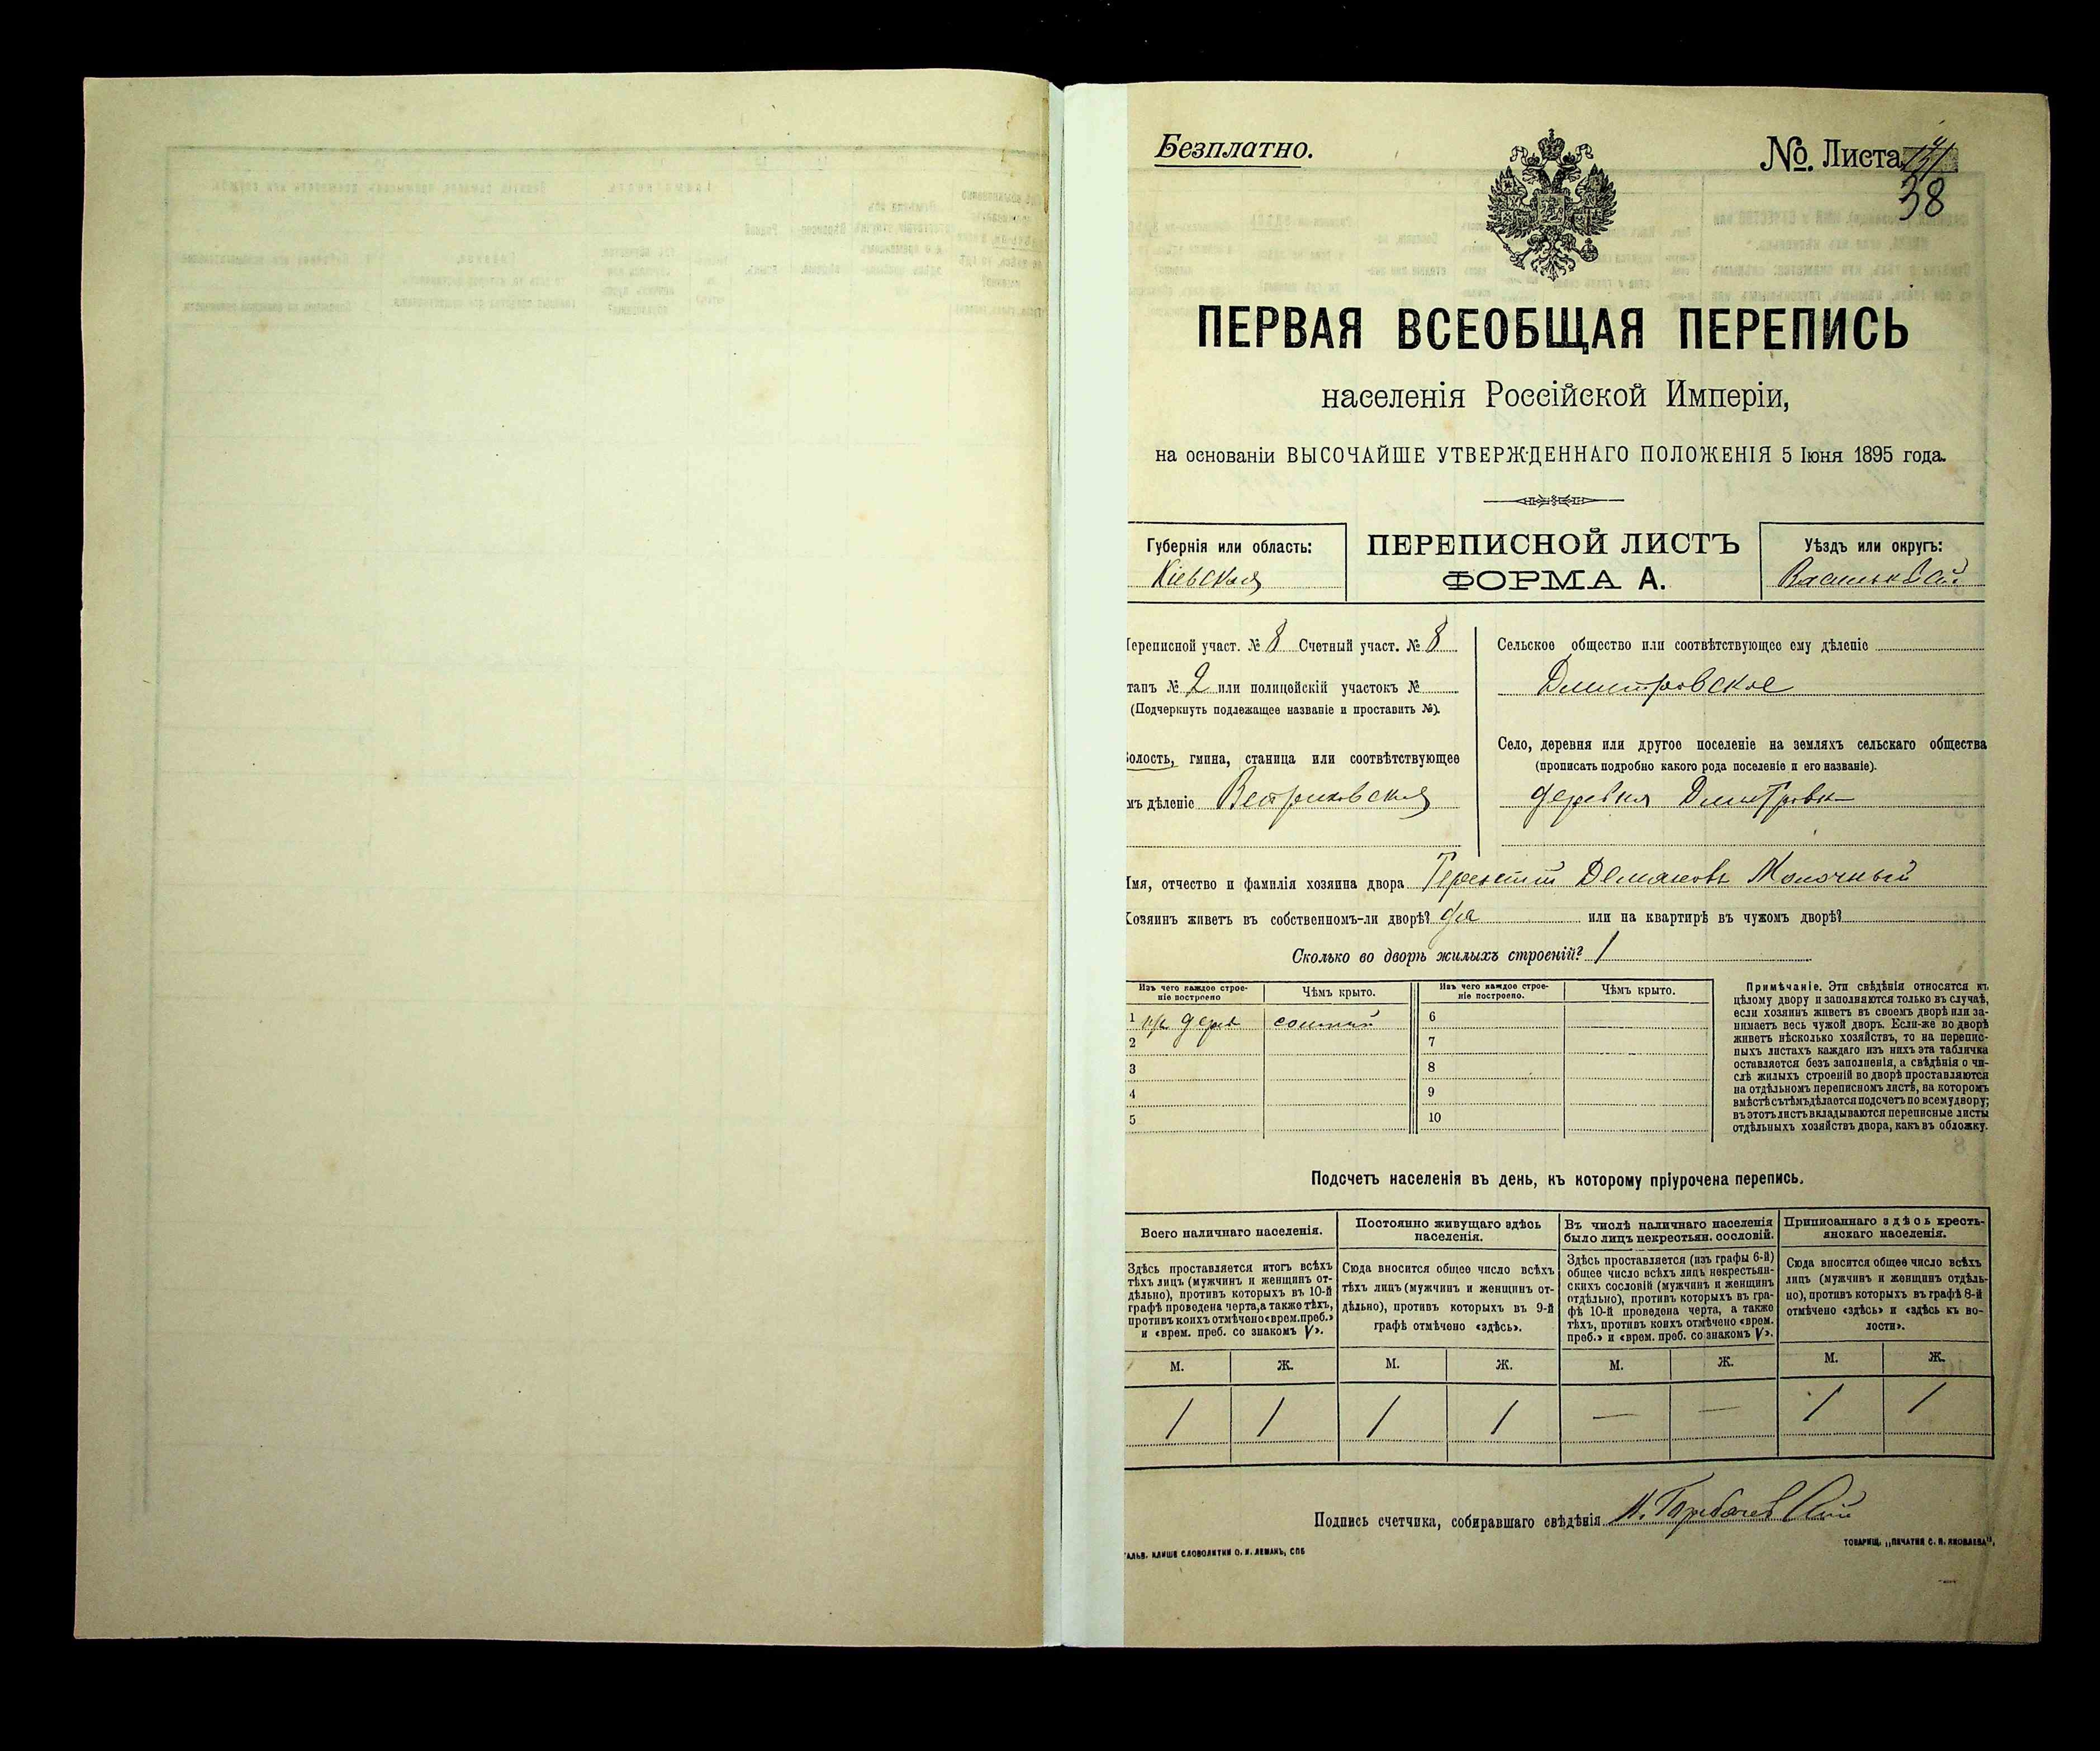 Безплатно.
№. Листа
38
ПЕРВАЯ ВСЕОБЩАЯ ПЕРЕПИСЬ
населенія Россійской Имперіи,
на основаніи ВЫСОЧАЙШЕ УТВЕРЖДЕННАГО ПОЛОЖЕНІЯ 5 Іюня 1895 года.
Губернія или область:
Кіевская
ПЕРЕПИСНОЙ ЛИСТЪ
ФОРМА А.
Уѣздъ или округъ:
ереписной участ. № 8 Счетный участ. № 8
танъ № 2 или полицейскій участокъ №
(Подчеркнуть подлежащее названіе и проставить №).
олость, гмина, станица или соотвѣтствующее
мъ дѣленіе
Сельское общество или соотвѣтствующее ему дѣленіе
Дмитровское
Село, деревня или другое поселеніе на земляхъ сельскаго общества
(прописать подробно какого рода поселеніе и его названіе).
деревня Дмитровка
мя, отчество и фамилія хозяина двора Терентій Демяновъ Молочный
озяинъ живетъ въ собственномъ-ли дворѣ? да или на квартирѣ въ чужомъ дворѣ?
Сколько во дворѣ жилыхъ строеній? 1
Изъ чего каждое строе-
ніе построено
Чѣмъ крыто.
Изъ чего каждое строе-
ніе построено.
Чѣмъ крыто.
1 дерев 6
2 7
3 8
4 9
5 10
Примѣчаніе. Эти свѣдѣнія относятся къ
цѣлому двору и заполняются только въ случаѣ,
если хозяинъ живетъ въ своемъ дворѣ или за-
нимаетъ весь чужой дворъ. Если-же во дворѣ
живетъ нѣсколько хозяйствъ, то на перепис-
ныхъ листахъ каждаго изъ нихъ эта табличка
оставляется безъ заполненія, а свѣдѣнія о чи-
слѣ жилыхъ строеній во дворѣ проставляются
на отдѣльномъ переписномъ листѣ, на которомъ
вмѣстѣ съ тѣмъ дѣлается подсчетъ по всему двору;
въ этотъ листъ вкладываются переписные листы
отдѣльныхъ хозяйствъ двора, какъ въ обложку.
Подсчетъ населенія въ день, къ которому пріурочена перепись.
Всего наличнаго населенія.
Здѣсь проставляется итогъ всѣхъ
тѣхъ лицъ (мужчинъ и женщинъ от-
дѣльно), противъ которыхъ въ 10-й
графѣ проведена черта, а также тѣхъ,
противъ коихъ отмѣчено «врем. преб.»
и «врем. преб. со знакомъ V».
Постоянно живущаго здѣсь
населенія.
Сюда вносится общее число всѣхъ
тѣхъ лицъ (мужчинъ и женщинъ от-
дѣльно), противъ которыхъ въ 9-й
графѣ отмѣчено «здѣсь».
Въ числѣ наличнаго населенія
было лицъ некрестьян. сословій.
Здѣсь проставляется (изъ графы 6-й)
общее число всѣхъ лицъ некрестьян-
скихъ сословій (мужчинъ и женщинъ
отдѣльно), противъ которыхъ въ гра-
фѣ 10-й проведена черта, а также
тѣхъ, противъ коихъ отмѣчено «врем.
преб.» и «врем. преб. со знакомъ V».
Приписаннаго здѣсь кресть-
янскаго населенія.
Сюда вносится общее число всѣхъ
лицъ (мужчинъ и женщинъ отдѣль-
но), противъ которыхъ въ графѣ 8-й
отмѣчено «здѣсь» и «здѣсь къ во-
лости».
М. Ж. М. Ж. М. Ж. М. Ж.
1 1 1 1 — — 1 1
Подпись счетчика, собиравшаго свѣдѣнія
АЛЬВ. КЛИШЕ СЛОВОЛИТНИ О. И. ЛЕМАНЪ, СПБ
ТОВАРИЩ. „ПЕЧАТНЯ С. П. ЯКОВЛЕВА“.